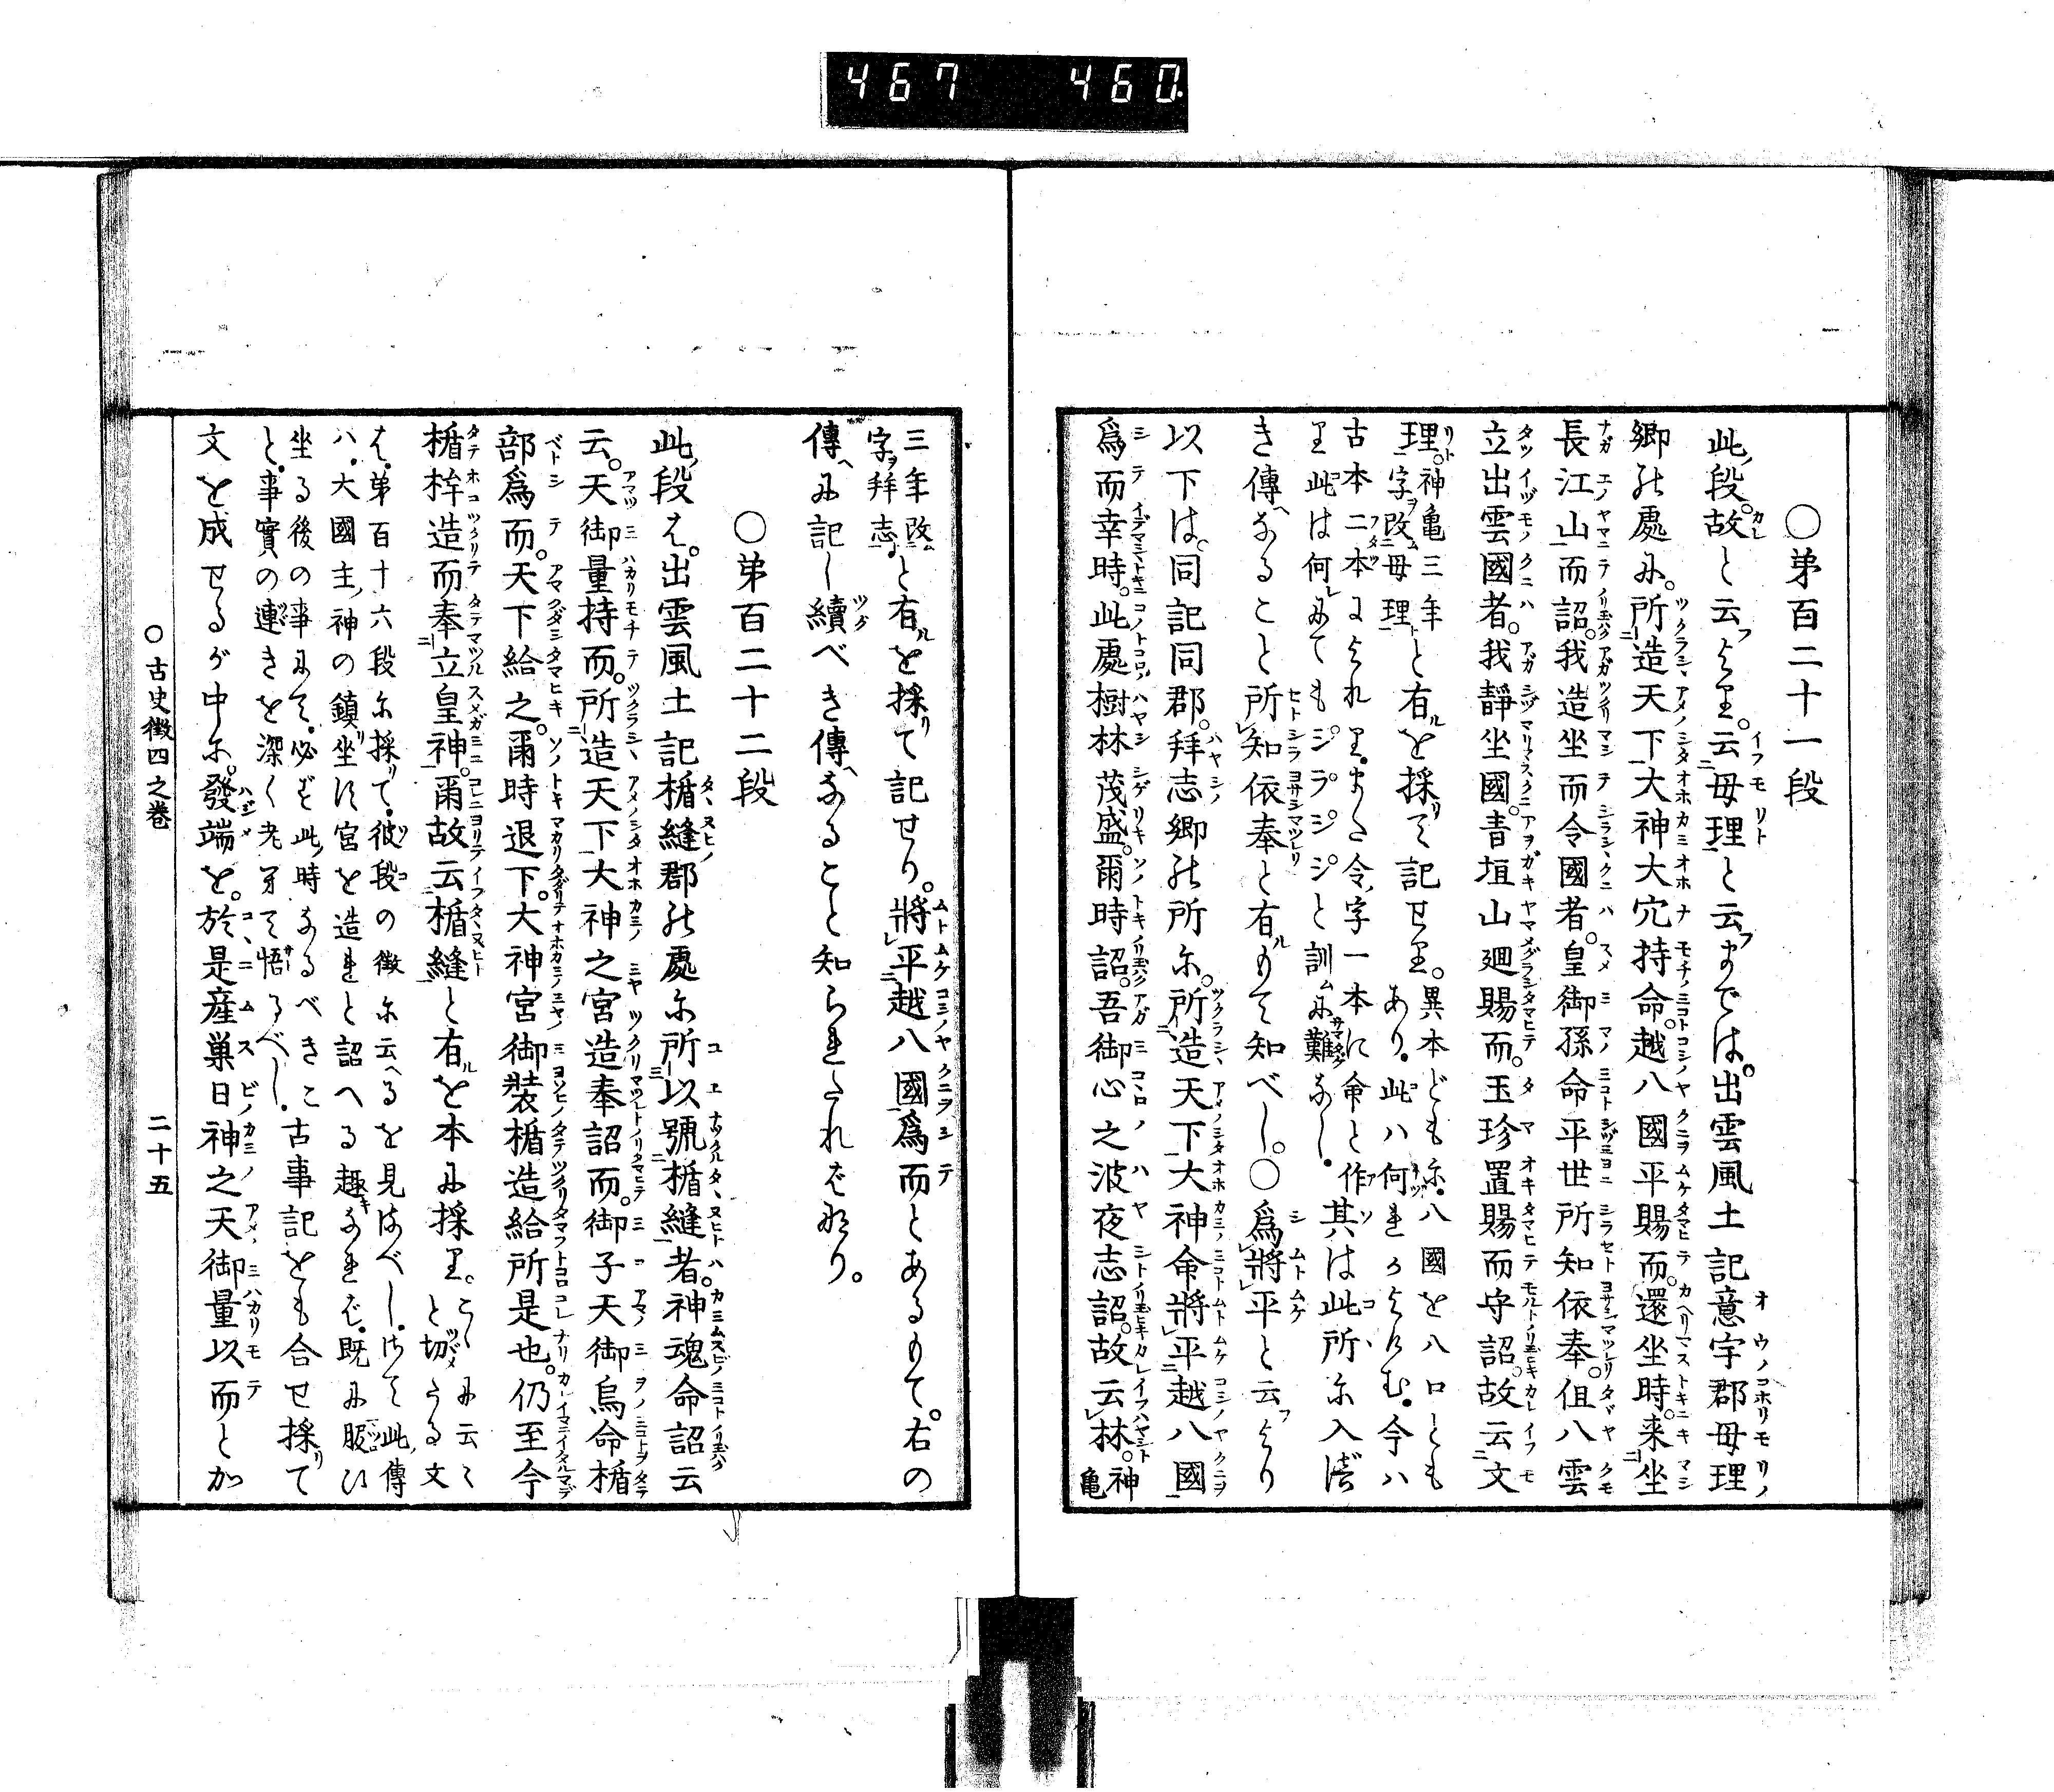 467 460
○第百二十一段
此段。故と云より。云母理と云までは。出雲風土記意宇郡母理
郷の處に。所造天下大神大穴持命。越八國平賜而。還坐時。来坐
長江山而詔。我造坐而令國者。皇御孫命平世所知依奉。但八雲
立出雲國者。我靜坐國。青垣山廻賜而。玉珍置賜而守詔。故云文
理。神亀三年改字母理と有るを採て記せり。異本どもに。八國を八口とも
あり。此ハ何れかよけむ。今ハ
古本二本によれり。また令字一本に命と作
り此は何にてもシラシシと訓に難なし。其は此所に入べ
き傳なること所知依奉と有るもて知べし。○爲將平と云より
以下は。同記同郡。拜志郷の所に。所造天下大神命將平越八國
爲而幸時。此處樹林茂盛。爾時詔。吾御心之波夜志詔。故云林。神亀
三年改字拜志と有るを採て記せり。將平越八國爲而とあるもて。右の
傳に記し續べき傳なること知られたればなり。
○第百二十二段
此段は。出雲風土記楯縫郡の處に所以號楯縫者。神魂命詔云
云。天御量持而。所造天下大神之宮造奉詔而。御子天御鳥命楯
部爲而。天下給之。爾時退下。大神宮御装楯造給所是也。仍至今
楯桙造而奉立皇神。爾故云楯縫と有るを本に採り。こゝに云々と切めたる文
は。第百十六段に採て。彼段の徴に云へるを見るべし。さて此傳
ハ。大國主神の鎮坐す宮を造れと詔へる趣なれば。既に服ひ
坐る後の事にて。必ず此時なるべきこ
と。事實の連きを深く考へて悟るべし。古事記をも合せ採て
文を成せるが中に。發端を。於是産巣日神之天御量以而とか
○古史徴四之巻 二十五